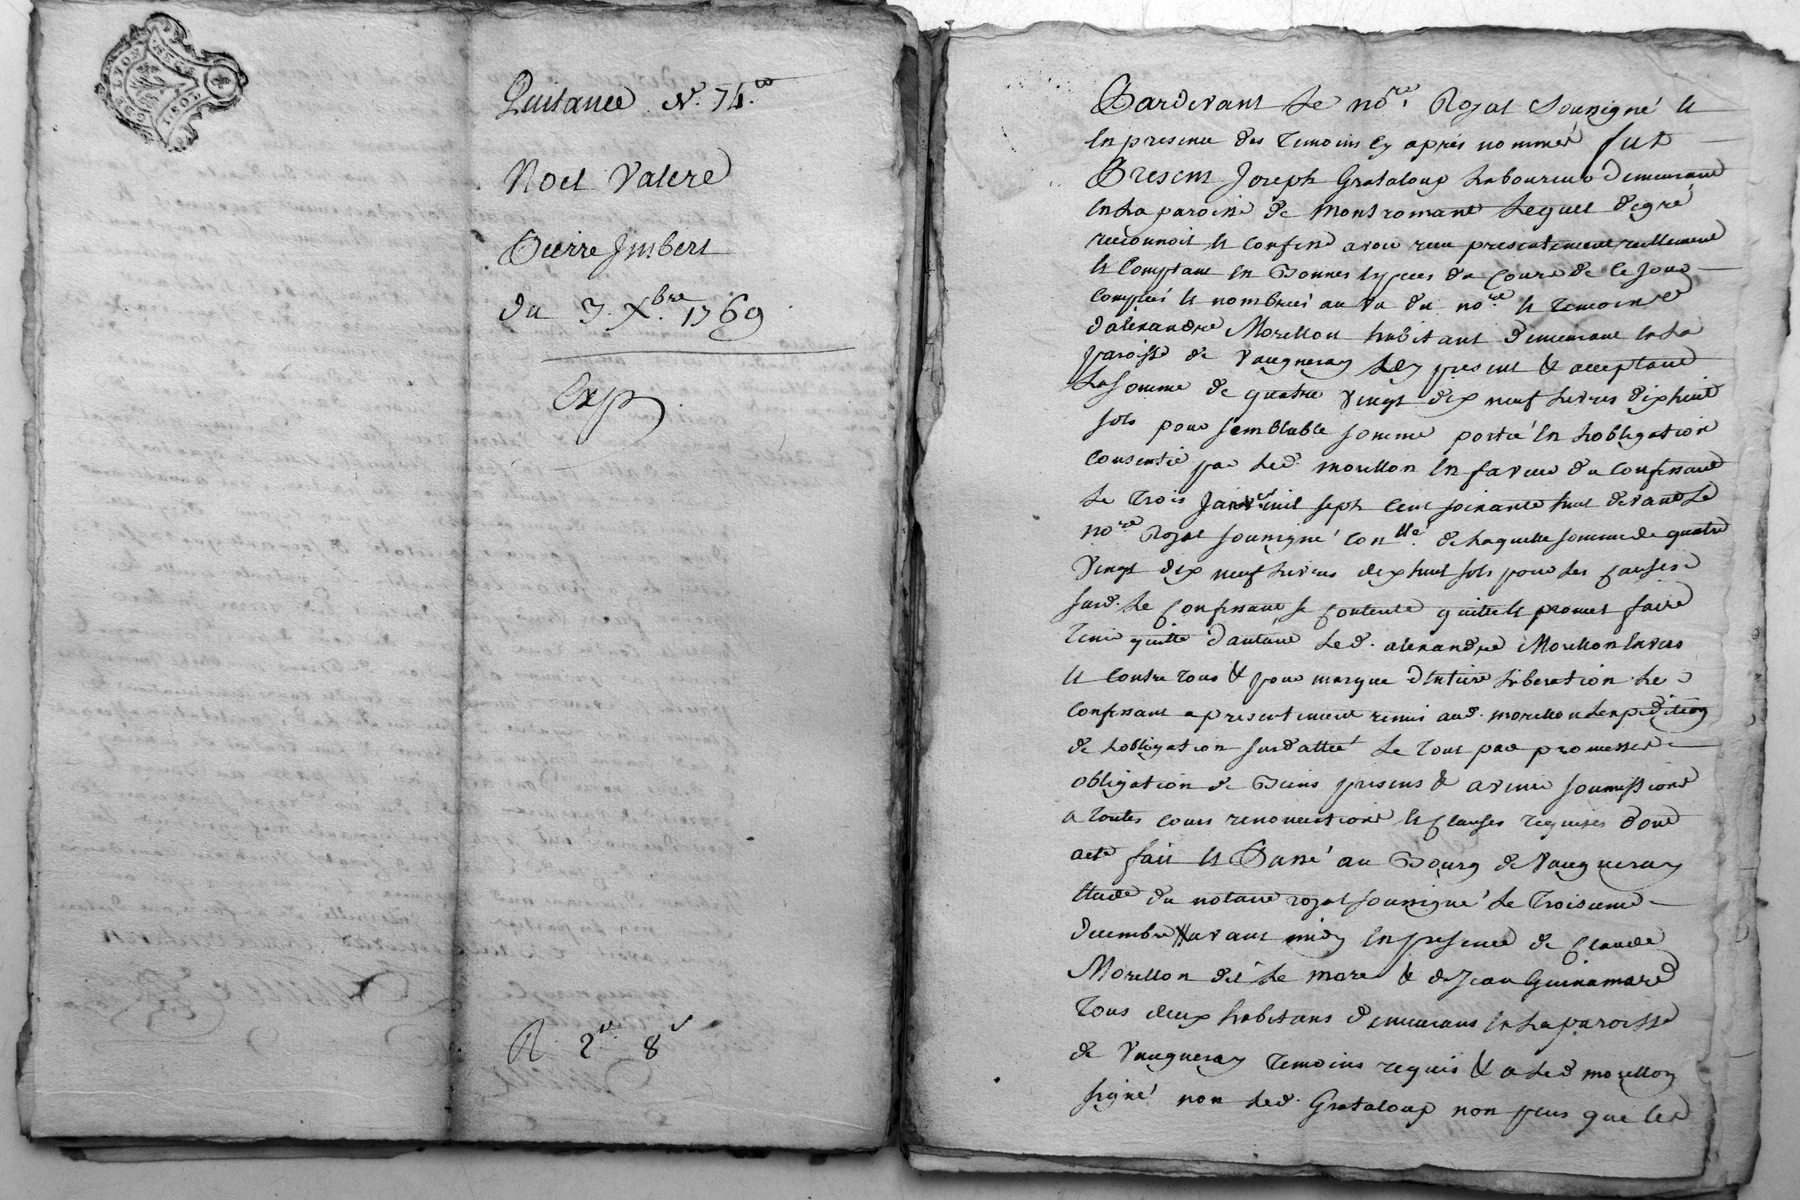 DE LYON
2 SOLS
Quitance N. 75.tt
Noel Valere
Pierre Jmbert
du 3. Xbre. 1769
Exp
R. 2tt 8s
Pardevant Le nore. Royal Soussigné et
En presence des temoins Cy aprés nommés fut
Present Joseph Grataloup Laboureur demeurant
En La paroisse de montromant Lequel de gré
reconnoit et confesse avoir receu presentement reellement
et Comptant en Bonnes Especes du Cours de ce jour
Comptéés et nombréés au vu du nore et temoins de
d'alexandre Morellon habitant demeurant En La
paroisse de Vaugneray Icy present & acceptant
La somme de quatre vingt dix neuf Livres dix huit
sols pour semblable somme portéé En Lobligation
Consentie par Led. morellon En faveur du Confessant
Le trois Janver mil sept Cent soixante huit devant Le
nore Royal soussigné Conlle. de Laquelle somme de quatre
Vingt dix neuf Livres dix huit sols pour Les Causes
susd. Le Confessant se Contente quitte et promet faire
tenir quitte d'autant Led. alexandre Morellon Envers
et Contre tous & pour marque dEntiere Liberation Le
Confessant a presentement remis aud. morellon Lexpedition
de Lobligation susdattéé Le tout par promesses
obligation de Biens presens & avenir soumissions
a toutes cours renonciations et Clauses requises dont
acte fait et Passé au Bourg de Vaugneray
Etude du notaire royal soussigné Le troisieme
decembre avant midy En presence de Claude
Morellon dit Le mare & de Jean Guinamard
tous deux habitans demeurans En La paroisse
de Vaugneray temoins requis & a Led morellon
signé non Led. Grataloup non plus que Les